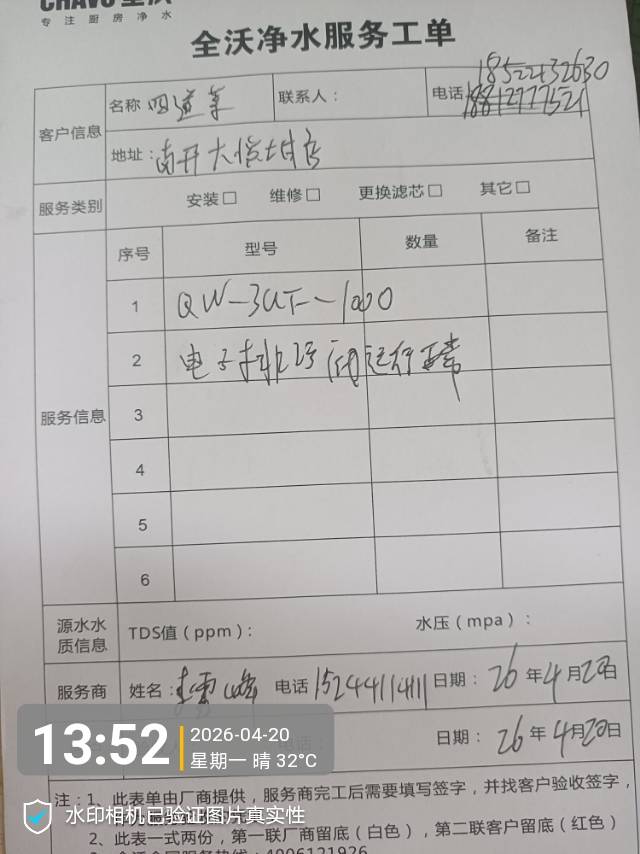 专注厨房净水
全沃净水服务工单
客户信息
名称 四道菜 联系人： 电话 18522132630
18812777521
地址：南开大悦城店
服务类别 安装□ 维修□ 更换滤芯□ 其它□
服务信息
序号 型号 数量 备注
1 QW-3UF-1000
2 电子排污阀运行正常
3
4
5
6
源水水质信息 TDS值（ppm）： 水压（mpa）：
服务商 姓名： 电话 15244114111 日期： 26 年 4 月 20日
日期： 26 年 4 月 20日
13:52 2026-04-20
星期一 晴 32℃
注：1、此表单由厂商提供，服务商完工后需要填写签字，并找客户验收签字，
水印相机已验证图片真实性
2、此表一式两份，第一联厂商留底（白色），第二联客户留底（红色）
4006121926